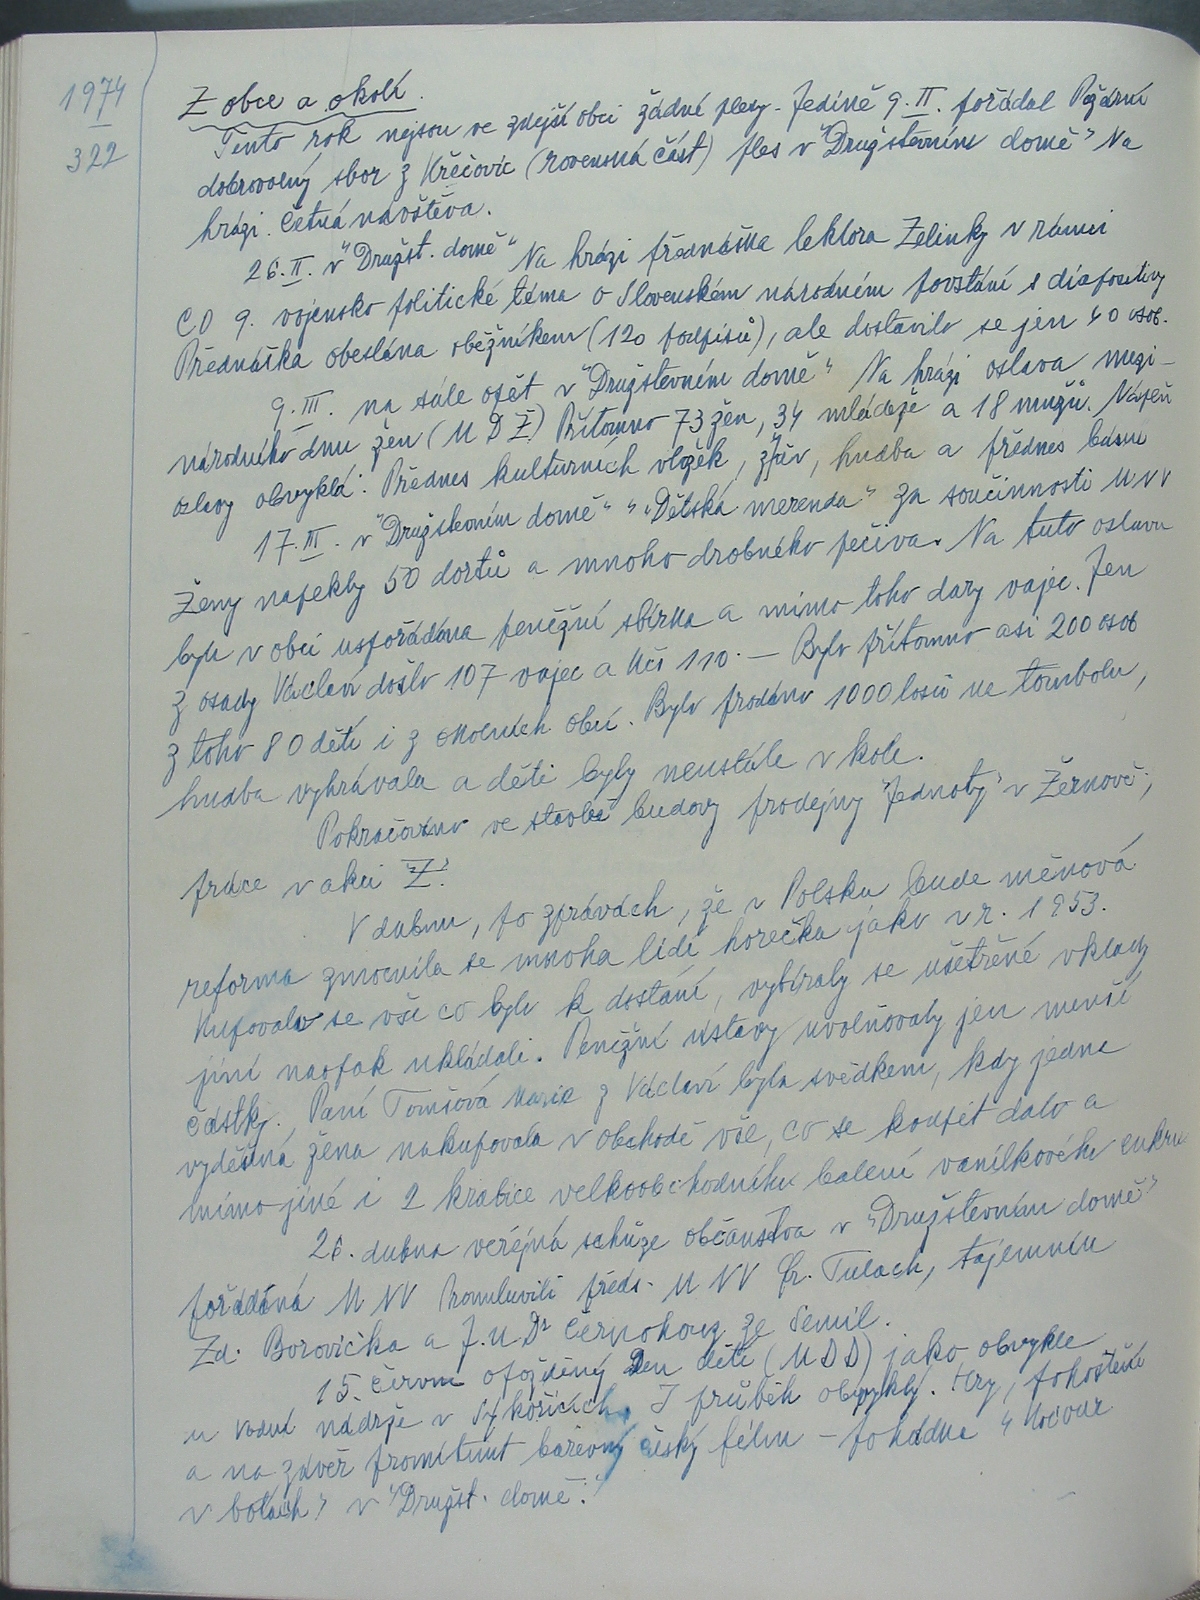 1974
322
Z obce a okolí.
Tento rok nejsou ve zdejší obci žádné plesy. Jedině 9. II. pořádal Požární
dobrovolný sbor z Křečovic (rovenská část) ples v "Družstevním domě" Na
hrázi. Četná návštěva.
26. II. v "Družst. domě" Na hrázi přednáška lektora Zelinky v rámci
CO 9. vojensko politické téma o Slovenském národním povstání s diapositivy
Přednáška obeslána oběžníkem (120 podpisů), ale dostavilo se jen 40 osob.
9. III. na sále opět v "Družstevním domě" Na hrázi oslava mezi-
národního dnu žen (MDŽ) Přítomno 73 žen, 34 mládeže a 18 mužů. Náplň
oslavy obvyklá: Přednes kulturních vložek, zpěv, hudba a přednes básní
17. III. v "Družstevním domě" "Dětská merenda" za součinnosti MNV
Ženy napekly 50 dortů a mnoho drobného pečiva. Na tuto oslavu
byla v obci uspořádána peněžní sbírka a mimo toho dary vajec. Jen
z osady Václaví došlo 107 vajec a Kčs 110.— Bylo přítomno asi 200 osob
z toho 80 dětí i z okolních obcí. Bylo prodáno 1000 losů na tombolu,
hudba vyhrávala a děti byly neustále v kole.
Pokračováno ve stavbě budovy prodejny "Jednoty" v Žernově,
práce v akci "Z".
V dubnu, po zprávách, že v Polsku bude měnová
reforma zmocnila se mnoha lidí horečka jako v r. 1953.
Kupovalo se vše co bylo k dostání, vybíraly se ušetřené vklady
jiní naopak ukládali. Peněžní ústavy uvolňovaly jen menší
částky. Paní Tomšová Marie z Václaví byla svědkem, kdy jedna
vyděšená žena nakupovala v obchodě vše, co se koupit dalo a
mimo jiné i 2 krabice velkoobchodního balení vanilkového cukru
26. dubna veřejná schůze občanstva v "Družstevním domě"
pořádaná MNV Promluvili předs. MNV Fr. Tulach, tajemník
Zd. Borovička a J.U.Dr Černohouz ze Semil.
15. červn opožděný Den dětí (MDD) jako obvykle
u vodní nádrže v Sýkořicích. I průběh obvyklý. Hry, pohoštění
a na závěr promítnut barevný český film – pohádka "Kocour
v botách" v "Družst. domě."